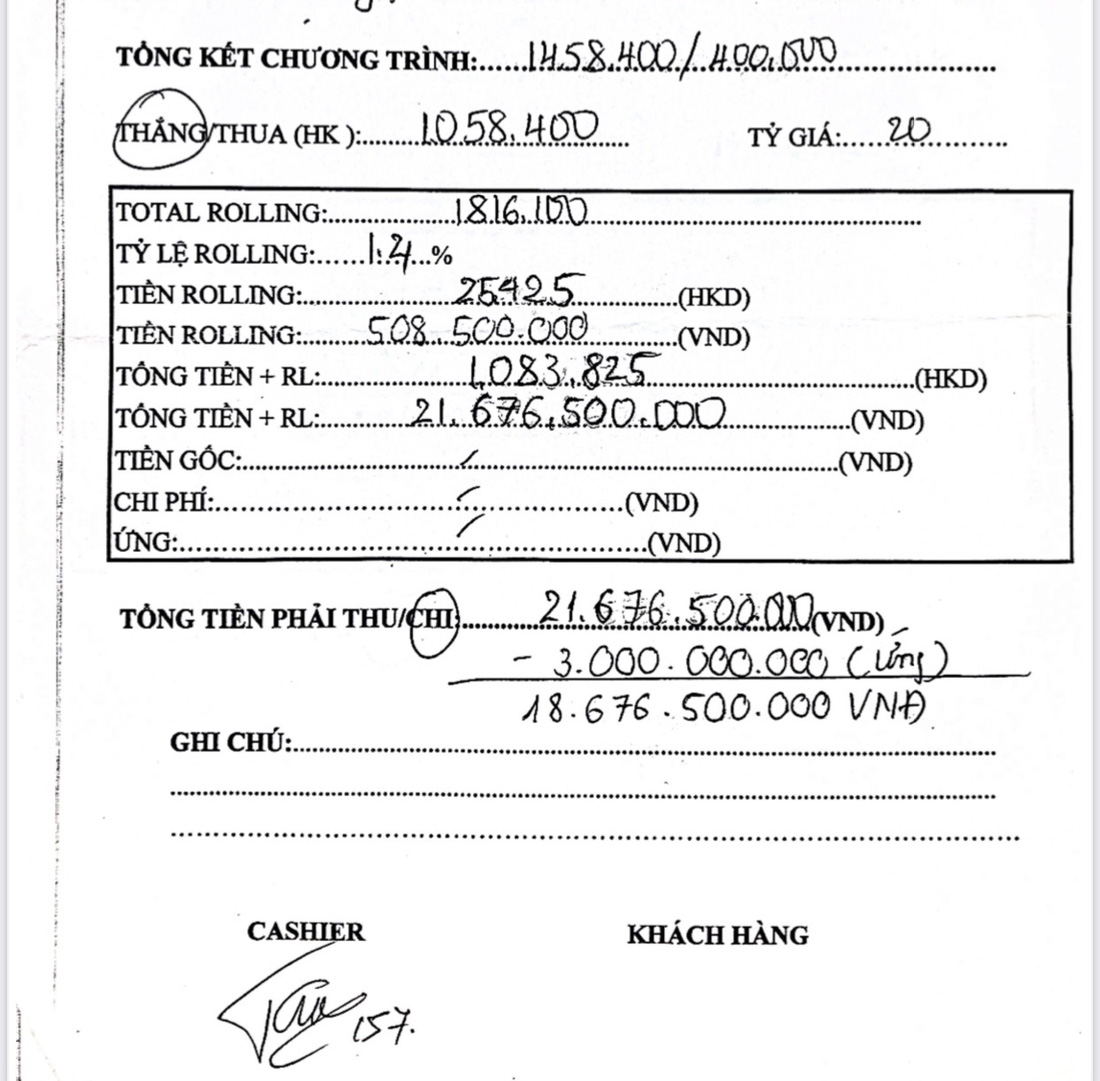 TỔNG KẾT CHƯƠNG TRÌNH: 1458.400/400.000
THẮNG/THUA (HK ): 1.058.400 TỶ GIÁ: 20
TOTAL ROLLING: 1816.100
TỶ LỆ ROLLING: 1.4 %
TIỀN ROLLING: 25425 (HKD)
TIỀN ROLLING: 508.500.000 (VND)
TỔNG TIỀN + RL: 1.083.825 (HKD)
TỔNG TIỀN + RL: 21.676.500.000 (VND)
TIỀN GỐC: (VND)
CHI PHÍ: (VND)
ỨNG: (VND)
TỔNG TIỀN PHẢI THU/CHI 21.676.500.000 (VND)
- 3.000.000.000 (ứng)
18.676.500.000 VNĐ
GHI CHÚ:
CASHIER KHÁCH HÀNG
157.